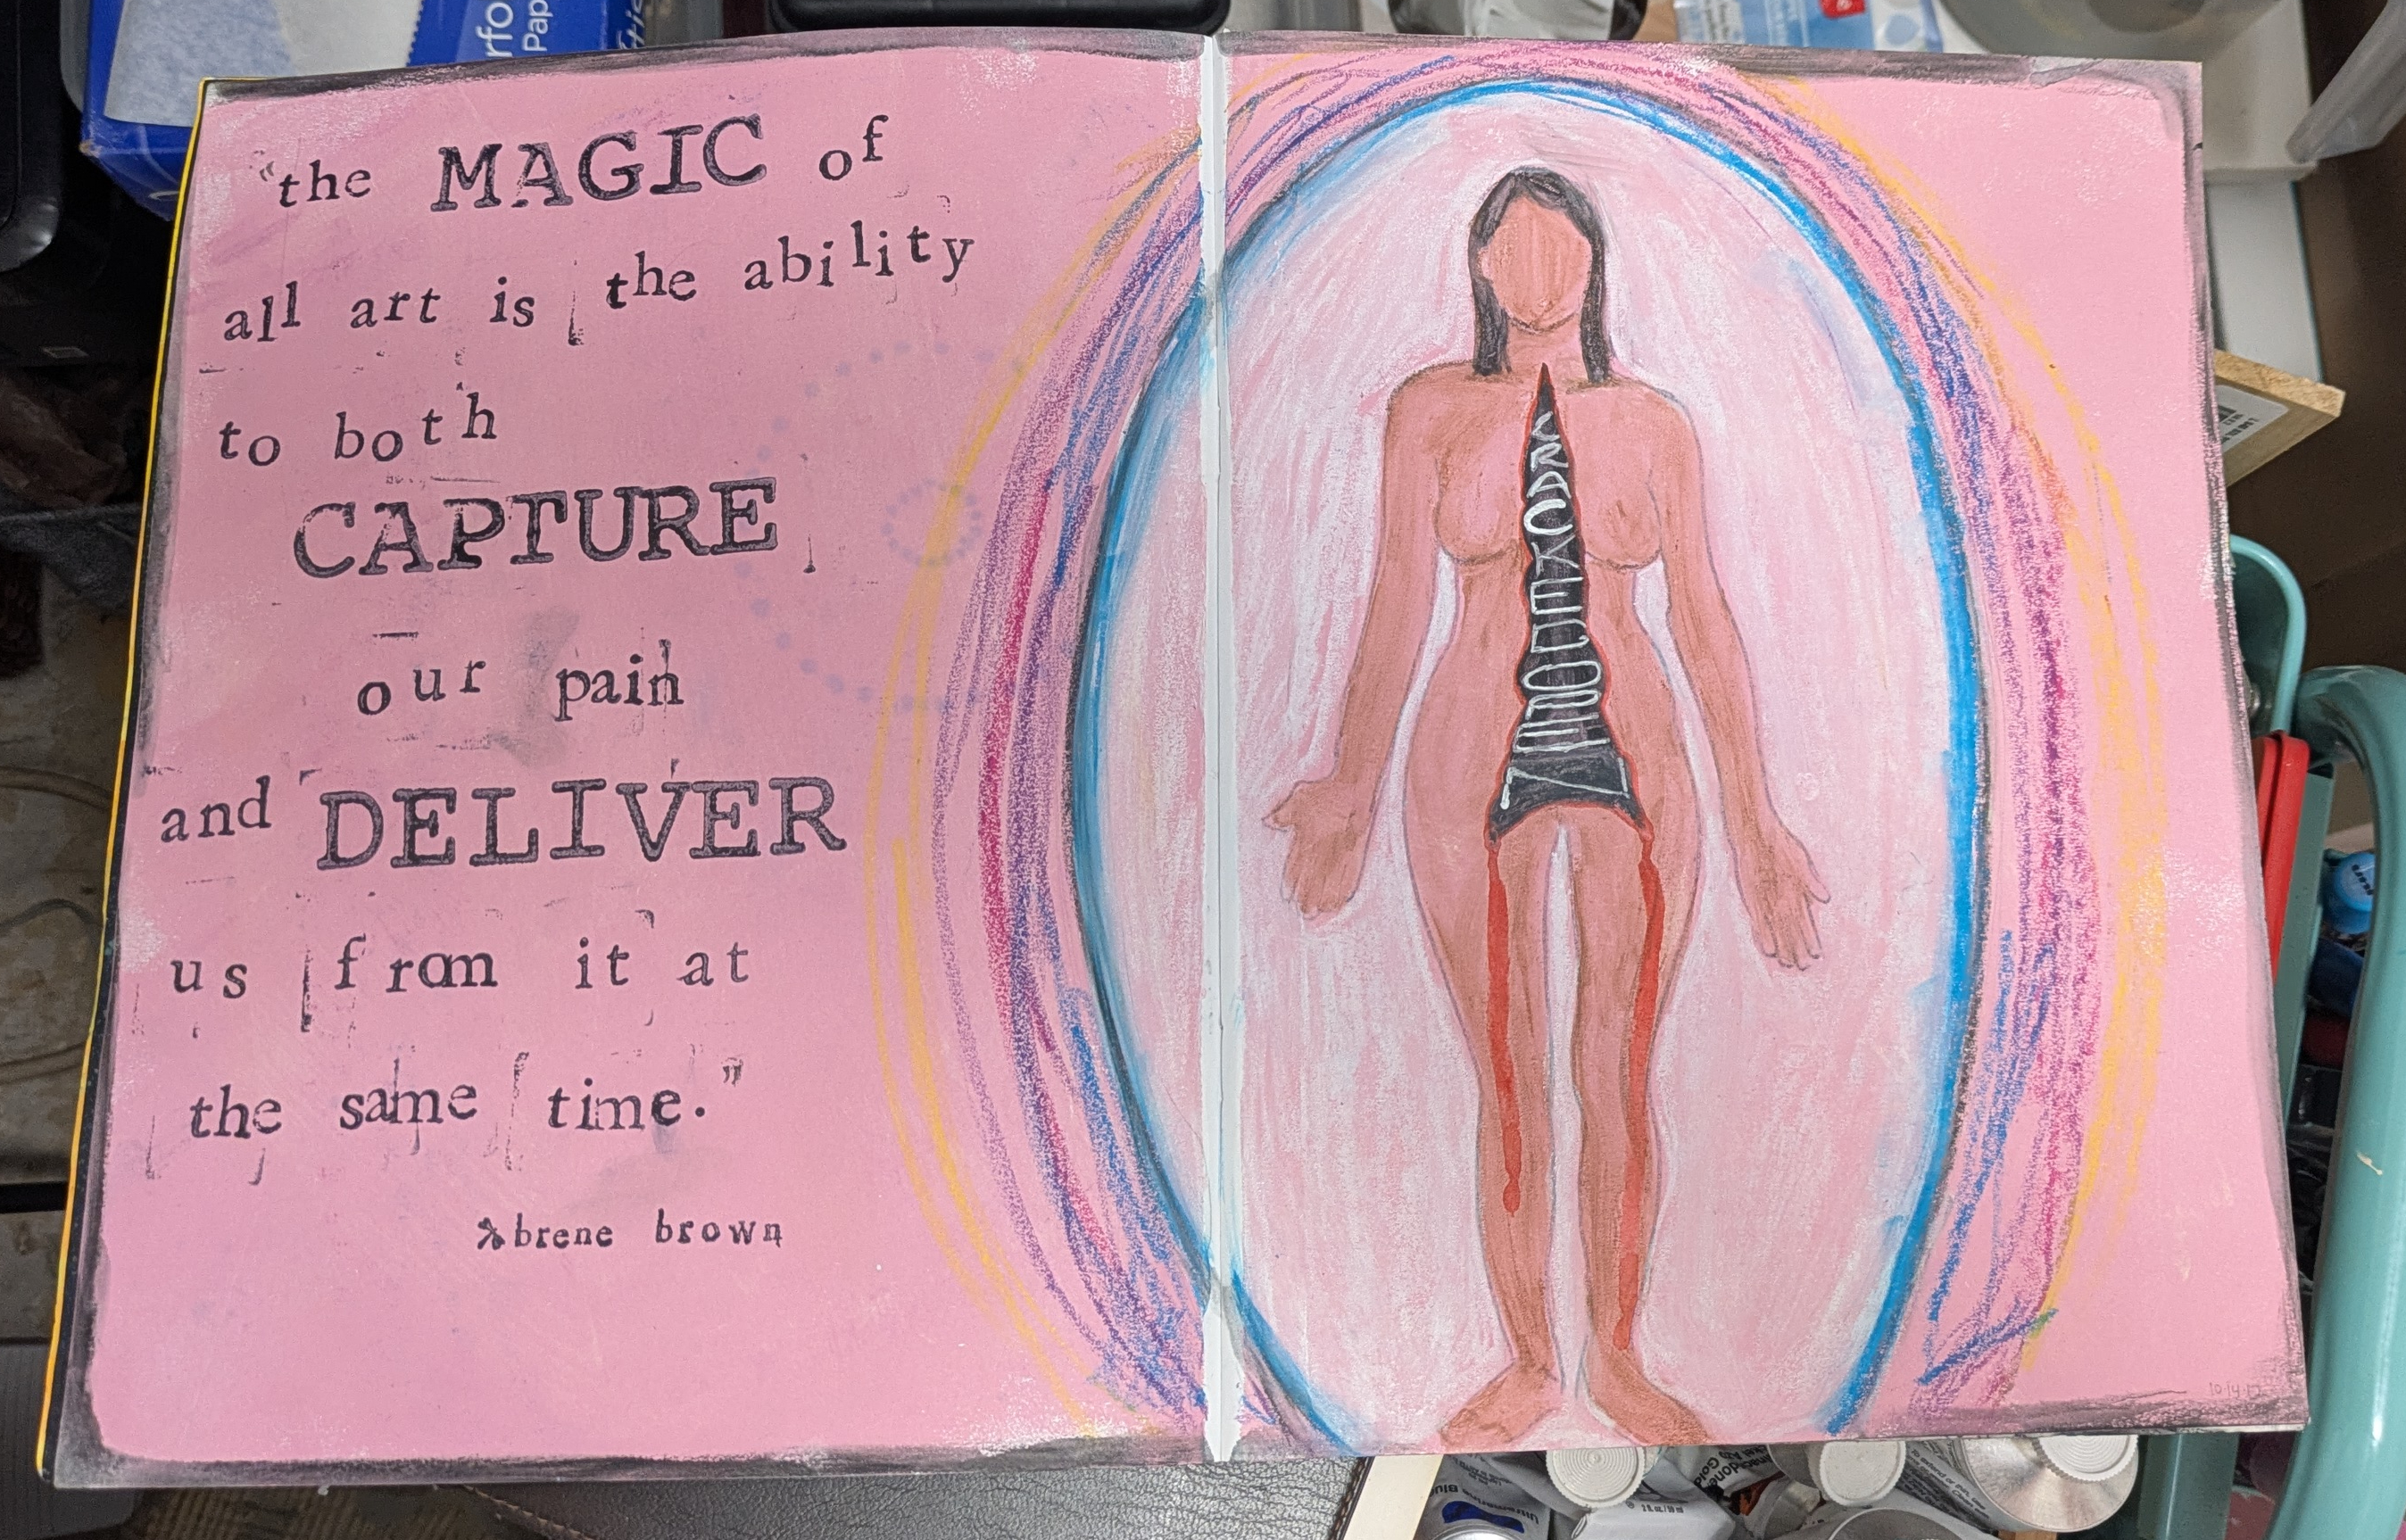 "the MAGIC of
all art is the ability
to both
CAPTURE
our pain
and DELIVER
us from it at
the same time."
brene brown
CRACKED
OPEN